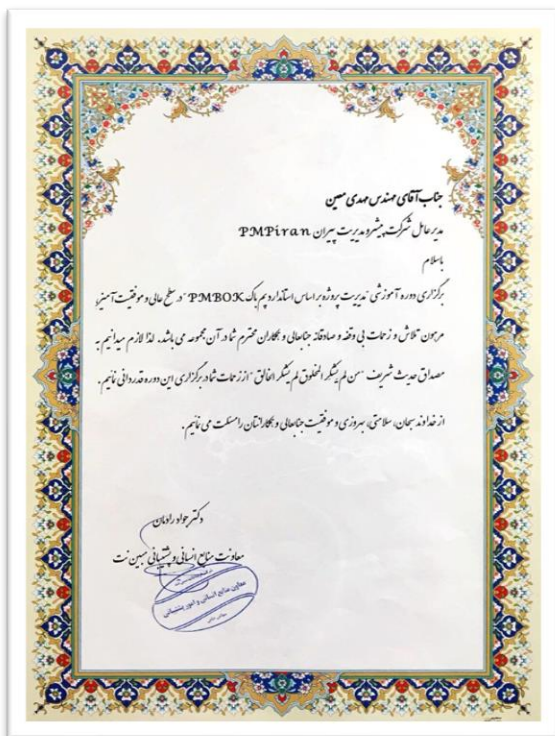 جناب آقای مهندس مهدی معین
مدیر عامل شرکت پیشرو مدیریت پیران PMPiran
باسلام
برگزاری دوره آموزشی "مدیریت پروژه بر اساس استاندارد پم باک PMBOK" در سطح عالی و موفقیت آمیز،
مرهون تلاش و زحمات بی وقفه و صادقانه جنابعالی و همکاران محترم شما در آن مجموعه می باشد. لذا لازم میدانیم به
مصداق حدیث شریف "من لم یشکر المخلوق لم یشکر الخالق" از زحمات شما در برگزاری این دوره قدردانی نمائیم.
از خداوند سبحان، سلامتی، بهروزی و موفقیت جنابعالی و همکارانتان را مسئلت می نمائیم.
دکتر جواد رادمان
معاونت منابع انسانی و پشتیبانی مبین نت
معاون منابع انسانی و امور پشتیبانی